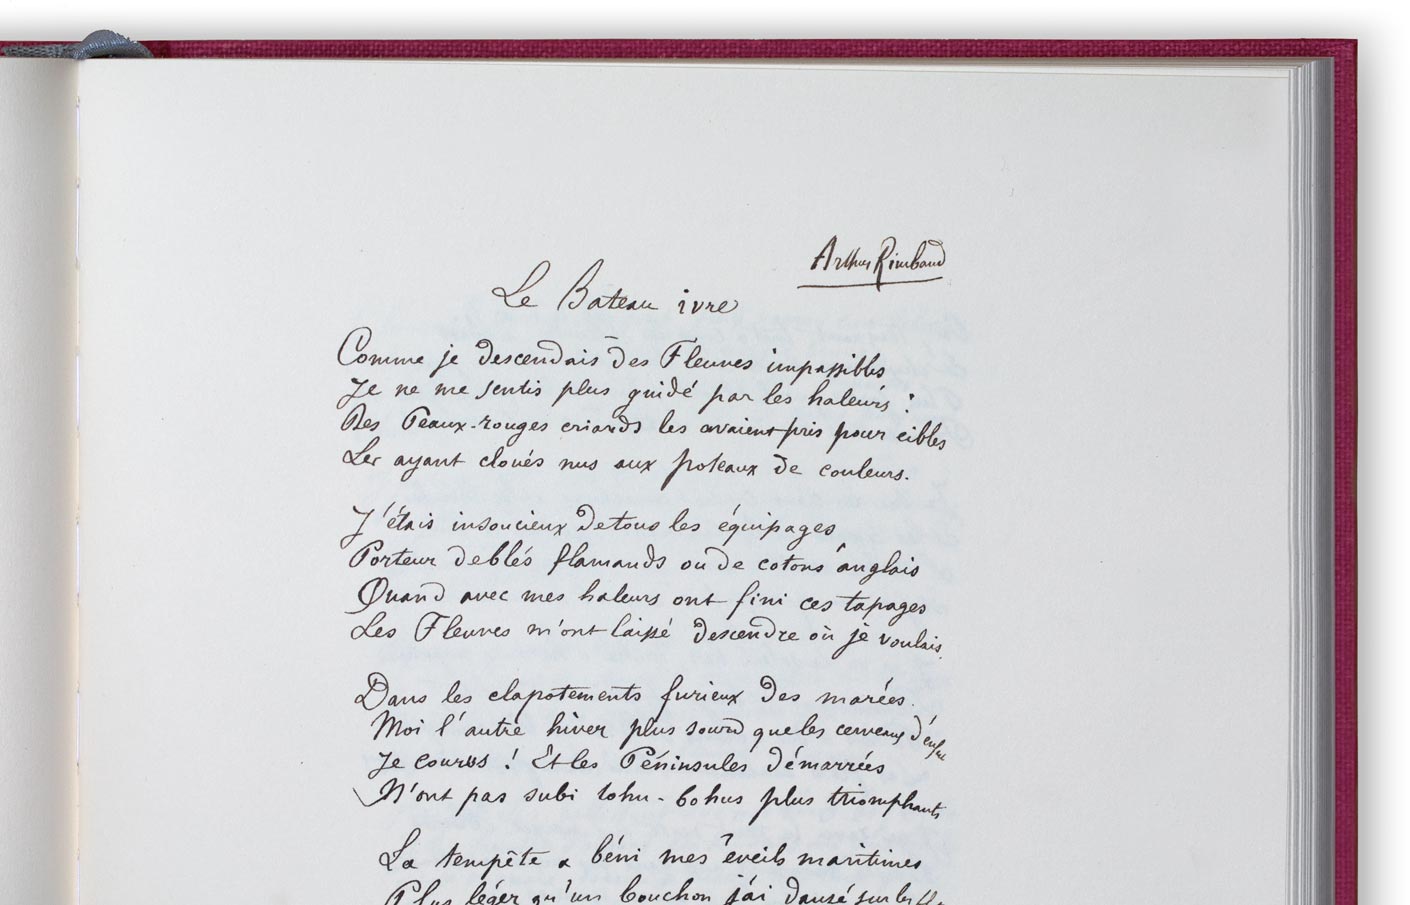 Arthur Rimbaud
Le Bateau ivre
Comme je descendais des Fleuves impassibles
Je ne me sentis plus guidé par les haleurs :
Des Peaux-rouges criards les avaient pris pour cibles
Les ayant cloués nus aux poteaux de couleurs.
J'étais insoucieux de tous les équipages,
Porteur de blés flamands ou de cotons anglais
Quand avec mes haleurs ont fini ces tapages
Les Fleuves m'ont laissé descendre où je voulais.
Dans les clapotements furieux des marées.
Moi l'autre hiver plus sourd que les cerveaux d'enfants
Je courus ! Et les Péninsules démarrées
N'ont pas subi tohu-bohus plus triomphants
La tempête a béni mes éveils maritimes
Plus léger qu'un bouchon j'ai dansé sur les